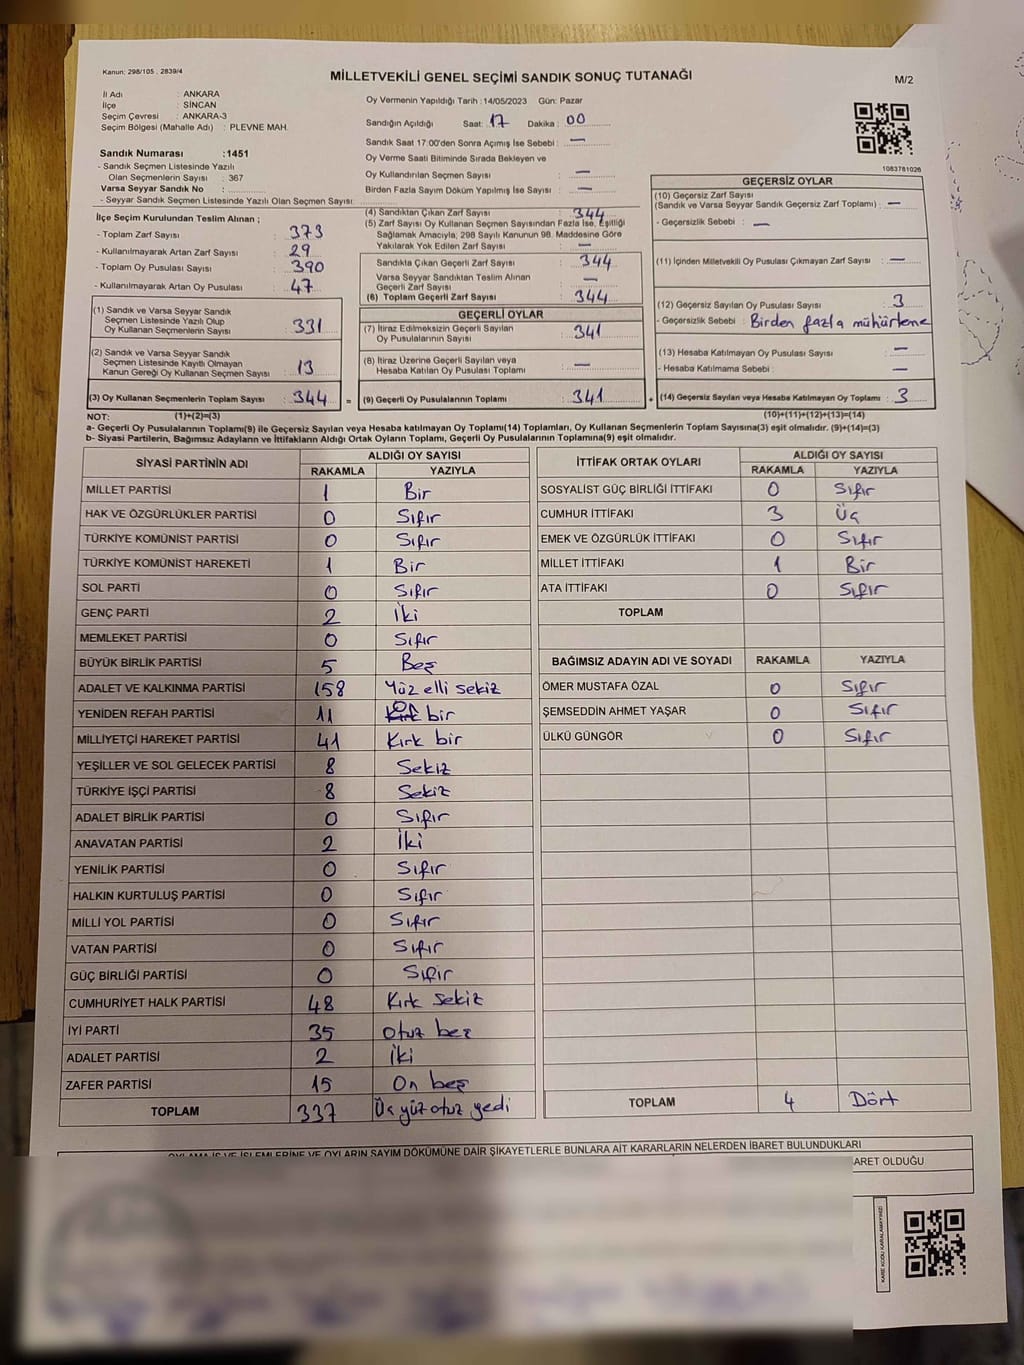 Kanun: 298/105 , 2839/4
MİLLETVEKİLİ GENEL SEÇİMİ SANDIK SONUÇ TUTANAĞI
M/2
İl Adı : ANKARA
İlçe : SİNCAN
Seçim Çevresi : ANKARA-3
Seçim Bölgesi (Mahalle Adı) : PLEVNE MAH.
Oy Vermenin Yapıldığı Tarih : 14/05/2023 Gün: Pazar
Sandığın Açıldığı Saat: 17 Dakika : 00
Sandık Saat 17:00'den Sonra Açımış İse Sebebi : —
Oy Verme Saati Bitiminde Sırada Bekleyen ve
Oy Kullandırılan Seçmen Sayısı : —
Birden Fazla Sayım Döküm Yapılmış İse Sayısı : —
1083781026
Sandık Numarası :1451
- Sandık Seçmen Listesinde Yazılı
Olan Seçmenlerin Sayısı : 367
Varsa Seyyar Sandık No :
- Seyyar Sandık Seçmen Listesinde Yazılı Olan Seçmen Sayısı:
İlçe Seçim Kurulundan Teslim Alınan ;
- Toplam Zarf Sayısı : 373
- Kullanılmayarak Artan Zarf Sayısı : 29
- Toplam Oy Pusulası Sayısı : 390
- Kullanılmayarak Artan Oy Pusulası : 47
(1) Sandık ve Varsa Seyyar Sandık
Seçmen Listesinde Yazılı Olup
Oy Kullanan Seçmenlerin Sayısı : 331
(2) Sandık ve Varsa Seyyar Sandık
Seçmen Listesinde Kayıtlı Olmayan
Kanun Gereği Oy Kullanan Seçmen Sayısı : 13
(3) Oy Kullanan Seçmenlerin Toplam Sayısı : 344 =
(4) Sandıktan Çıkan Zarf Sayısı : 344
(5) Zarf Sayısı Oy Kullanan Seçmen Sayısından Fazla İse, Eşitliği
Sağlamak Amacıyla; 298 Sayılı Kanunun 98. Maddesine Göre
Yakılarak Yok Edilen Zarf Sayısı : —
Sandıkta Çıkan Geçerli Zarf Sayısı : 344
Varsa Seyyar Sandıktan Teslim Alınan
Geçerli Zarf Sayısı : —
(6) Toplam Geçerli Zarf Sayısı : 344
GEÇERLİ OYLAR
(7) İtiraz Edilmeksizin Geçerli Sayılan
Oy Pusulalarının Sayısı : 341
(8) İtiraz Üzerine Geçerli Sayılan veya
Hesaba Katılan Oy Pusulası Toplamı : —
(9) Geçerli Oy Pusulalarının Toplamı : 341 +
GEÇERSİZ OYLAR
(10) Geçersiz Zarf Sayısı
(Sandık ve Varsa Seyyar Sandık Geçersiz Zarf Toplamı) : —
- Geçersizlik Sebebi : —
(11) İçinden Milletvekili Oy Pusulası Çıkmayan Zarf Sayısı : —
(12) Geçersiz Sayılan Oy Pusulası Sayısı : 3
- Geçersizlik Sebebi : Birden fazla mühürleme
(13) Hesaba Katılmayan Oy Pusulası Sayısı : —
- Hesaba Katılmama Sebebi : —
(14) Geçersiz Sayılan veya Hesaba Katılmayan Oy Toplamı : 3
NOT: (1)+(2)=(3) (10)+(11)+(12)+(13)=(14)
a- Geçerli Oy Pusulalarının Toplamı(9) ile Geçersiz Sayılan veya Hesaba katılmayan Oy Toplamı(14) Toplamları, Oy Kullanan Seçmenlerin Toplam Sayısına(3) eşit olmalıdır. (9)+(14)=(3)
b- Siyasi Partilerin, Bağımsız Adayların ve İttifakların Aldığı Ortak Oyların Toplamı, Geçerli Oy Pusulalarının Toplamına(9) eşit olmalıdır.
SİYASİ PARTİNİN ADI ALDIĞI OY SAYISI
RAKAMLA YAZIYLA
MİLLET PARTİSİ 1 Bir
HAK VE ÖZGÜRLÜKLER PARTİSİ 0 Sıfır
TÜRKİYE KOMÜNİST PARTİSİ 0 Sıfır
TÜRKİYE KOMÜNİST HAREKETİ 1 Bir
SOL PARTİ 0 Sıfır
GENÇ PARTİ 2 İki
MEMLEKET PARTİSİ 0 Sıfır
BÜYÜK BİRLİK PARTİSİ 5 Beş
ADALET VE KALKINMA PARTİSİ 158 Yüz elli sekiz
YENİDEN REFAH PARTİSİ 11 On bir
MİLLİYETÇİ HAREKET PARTİSİ 41 Kırk bir
YEŞİLLER VE SOL GELECEK PARTİSİ 8 Sekiz
TÜRKİYE İŞÇİ PARTİSİ 8 Sekiz
ADALET BİRLİK PARTİSİ 0 Sıfır
ANAVATAN PARTİSİ 2 İki
YENİLİK PARTİSİ 0 Sıfır
HALKIN KURTULUŞ PARTİSİ 0 Sıfır
MİLLİ YOL PARTİSİ 0 Sıfır
VATAN PARTİSİ 0 Sıfır
GÜÇ BİRLİĞİ PARTİSİ 0 Sıfır
CUMHURİYET HALK PARTİSİ 48 Kırk sekiz
İYİ PARTİ 35 Otuz beş
ADALET PARTİSİ 2 İki
ZAFER PARTİSİ 15 On beş
TOPLAM 337 Üç yüz otuz yedi
İTTİFAK ORTAK OYLARI ALDIĞI OY SAYISI
RAKAMLA YAZIYLA
SOSYALİST GÜÇ BİRLİĞİ İTTİFAKI 0 Sıfır
CUMHUR İTTİFAKI 3 Üç
EMEK VE ÖZGÜRLÜK İTTİFAKI 0 Sıfır
MİLLET İTTİFAKI 1 Bir
ATA İTTİFAKI 0 Sıfır
TOPLAM
BAĞIMSIZ ADAYIN ADI VE SOYADI RAKAMLA YAZIYLA
ÖMER MUSTAFA ÖZAL 0 Sıfır
ŞEMSEDDİN AHMET YAŞAR 0 Sıfır
ÜLKÜ GÜNGÖR 0 Sıfır
TOPLAM 4 Dört
OYLAMA İŞ VE İŞLEMLERİNE VE OYLARIN SAYIM DÖKÜMÜNE DAİR ŞİKAYETLERLE BUNLARA AİT KARARLARIN NELERDEN İBARET BULUNDUKLARI
BARET OLDUĞU
KARE KODU KARALAMAYINIZ!